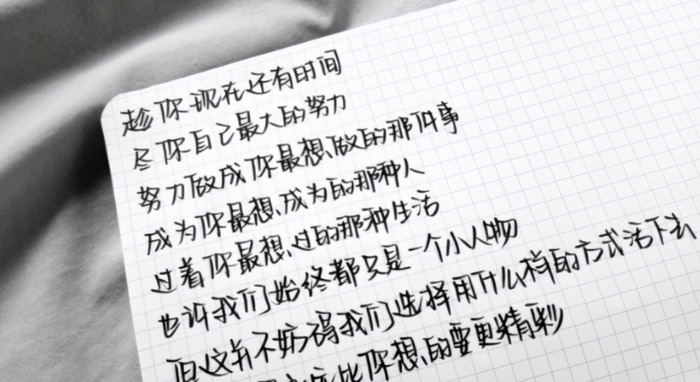 趁你现在还有时间
尽你自己最大的努力
努力做成你最想做的那件事
成为你最想成为的那种人
过着你最想过的那种生活
也许我们始终都只是一个小人物
但这并不妨碍我们选择用什么样的方式活下去
比你想的要更精彩